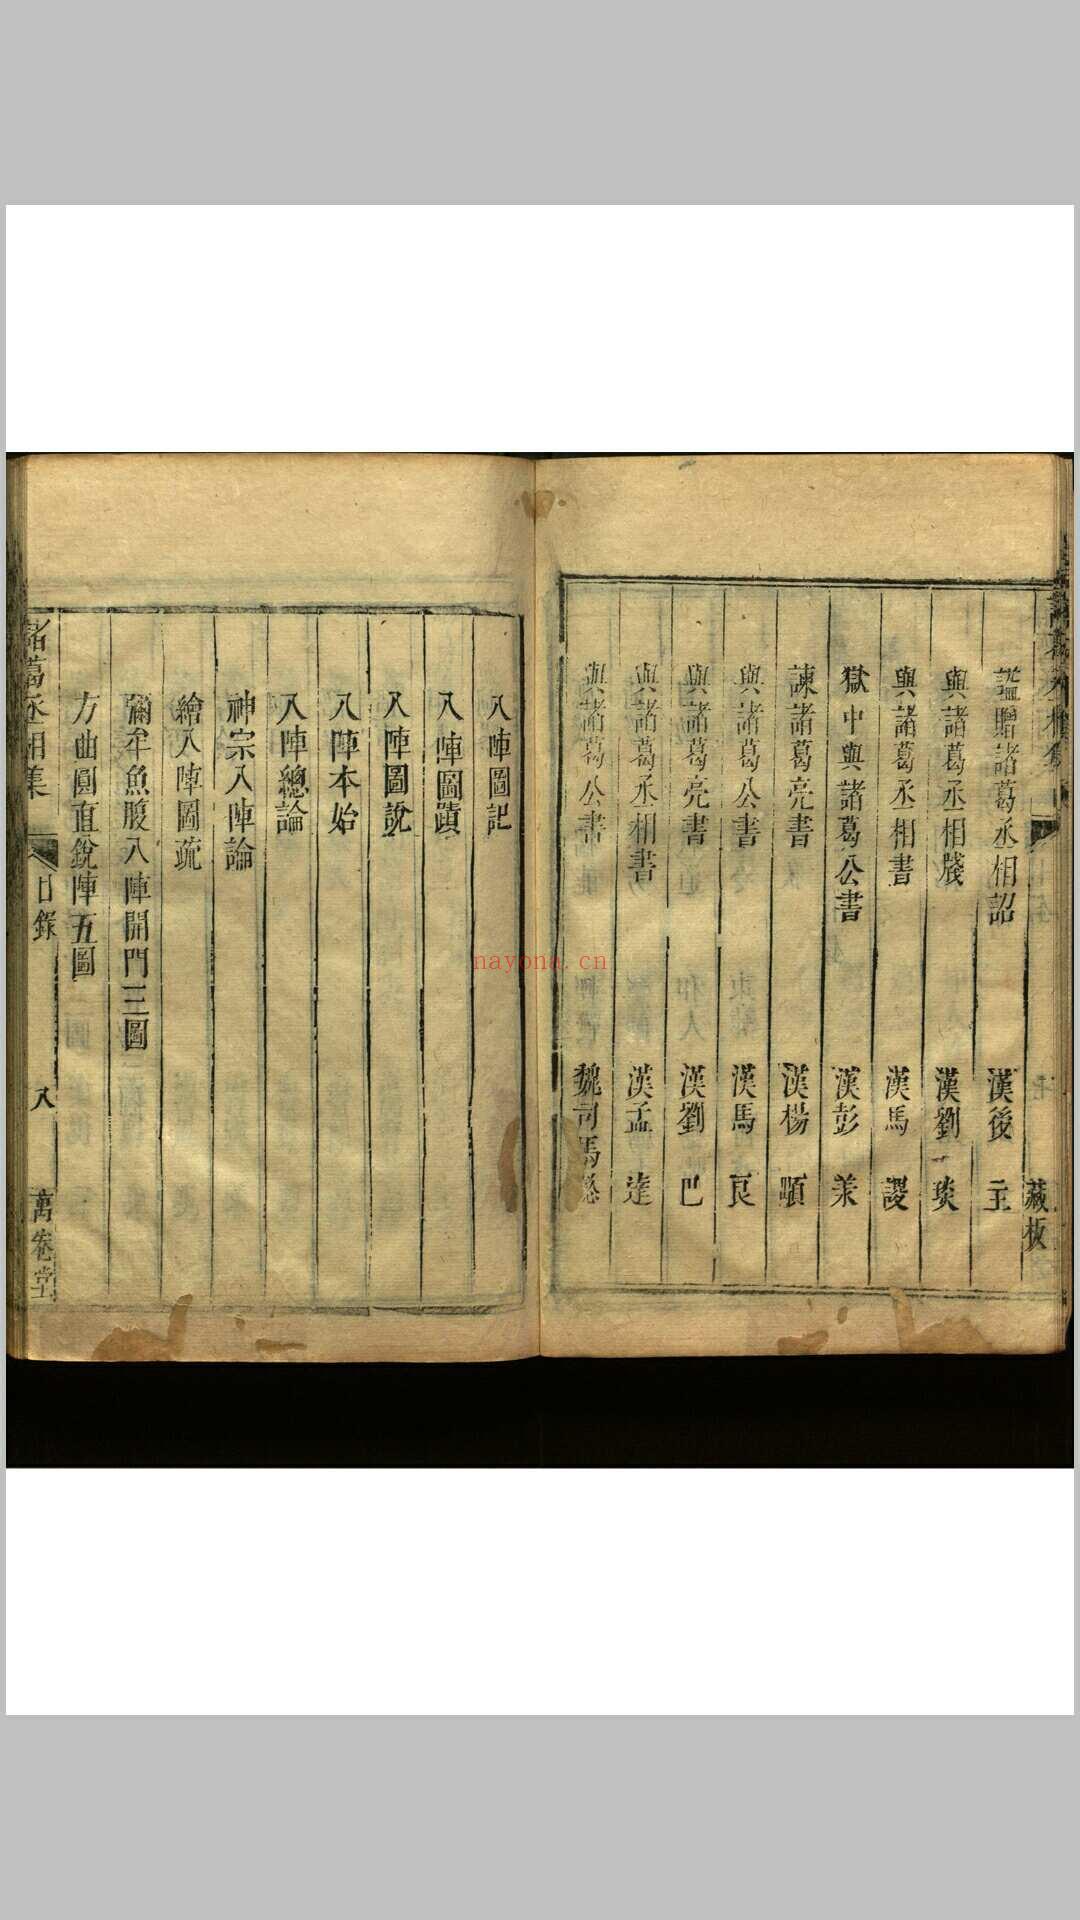 藏板
謚贈諸葛丞相詔 漢後主
與諸葛丞相牋 漢劉琰
與諸葛丞相書 漢馬謖
獄中與諸葛公書 漢彭羕
諫諸葛亮書 漢楊顒
與諸葛公書 漢馬良
與諸葛亮書 漢劉巴
與諸葛丞相書 漢孟達
與諸葛公書 魏司馬懿
八陣圖記
八陣圖蹟
八陣圖說
八陣本始
八陣總論
神宗八陣論
繪八陣圖疏
彌牟魚腹八陣開門三圖
方曲圓直銳陣五圖
諸葛丞相集 目錄 八 萬卷堂
nayona.cn